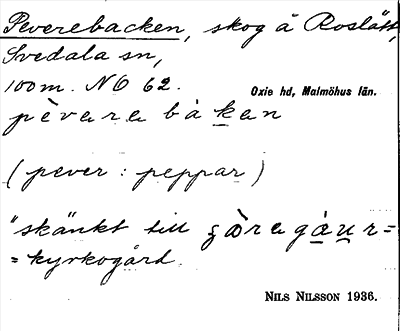 Peverebacken, skog å Roslätt,
Svedala sn,
100m. NO 62.
Oxie hd, Malmöhus län.
pèvara bàkan
(pever : peppar)
"skänkt till
= kyrkogård.
NILS NILSSON 1936.